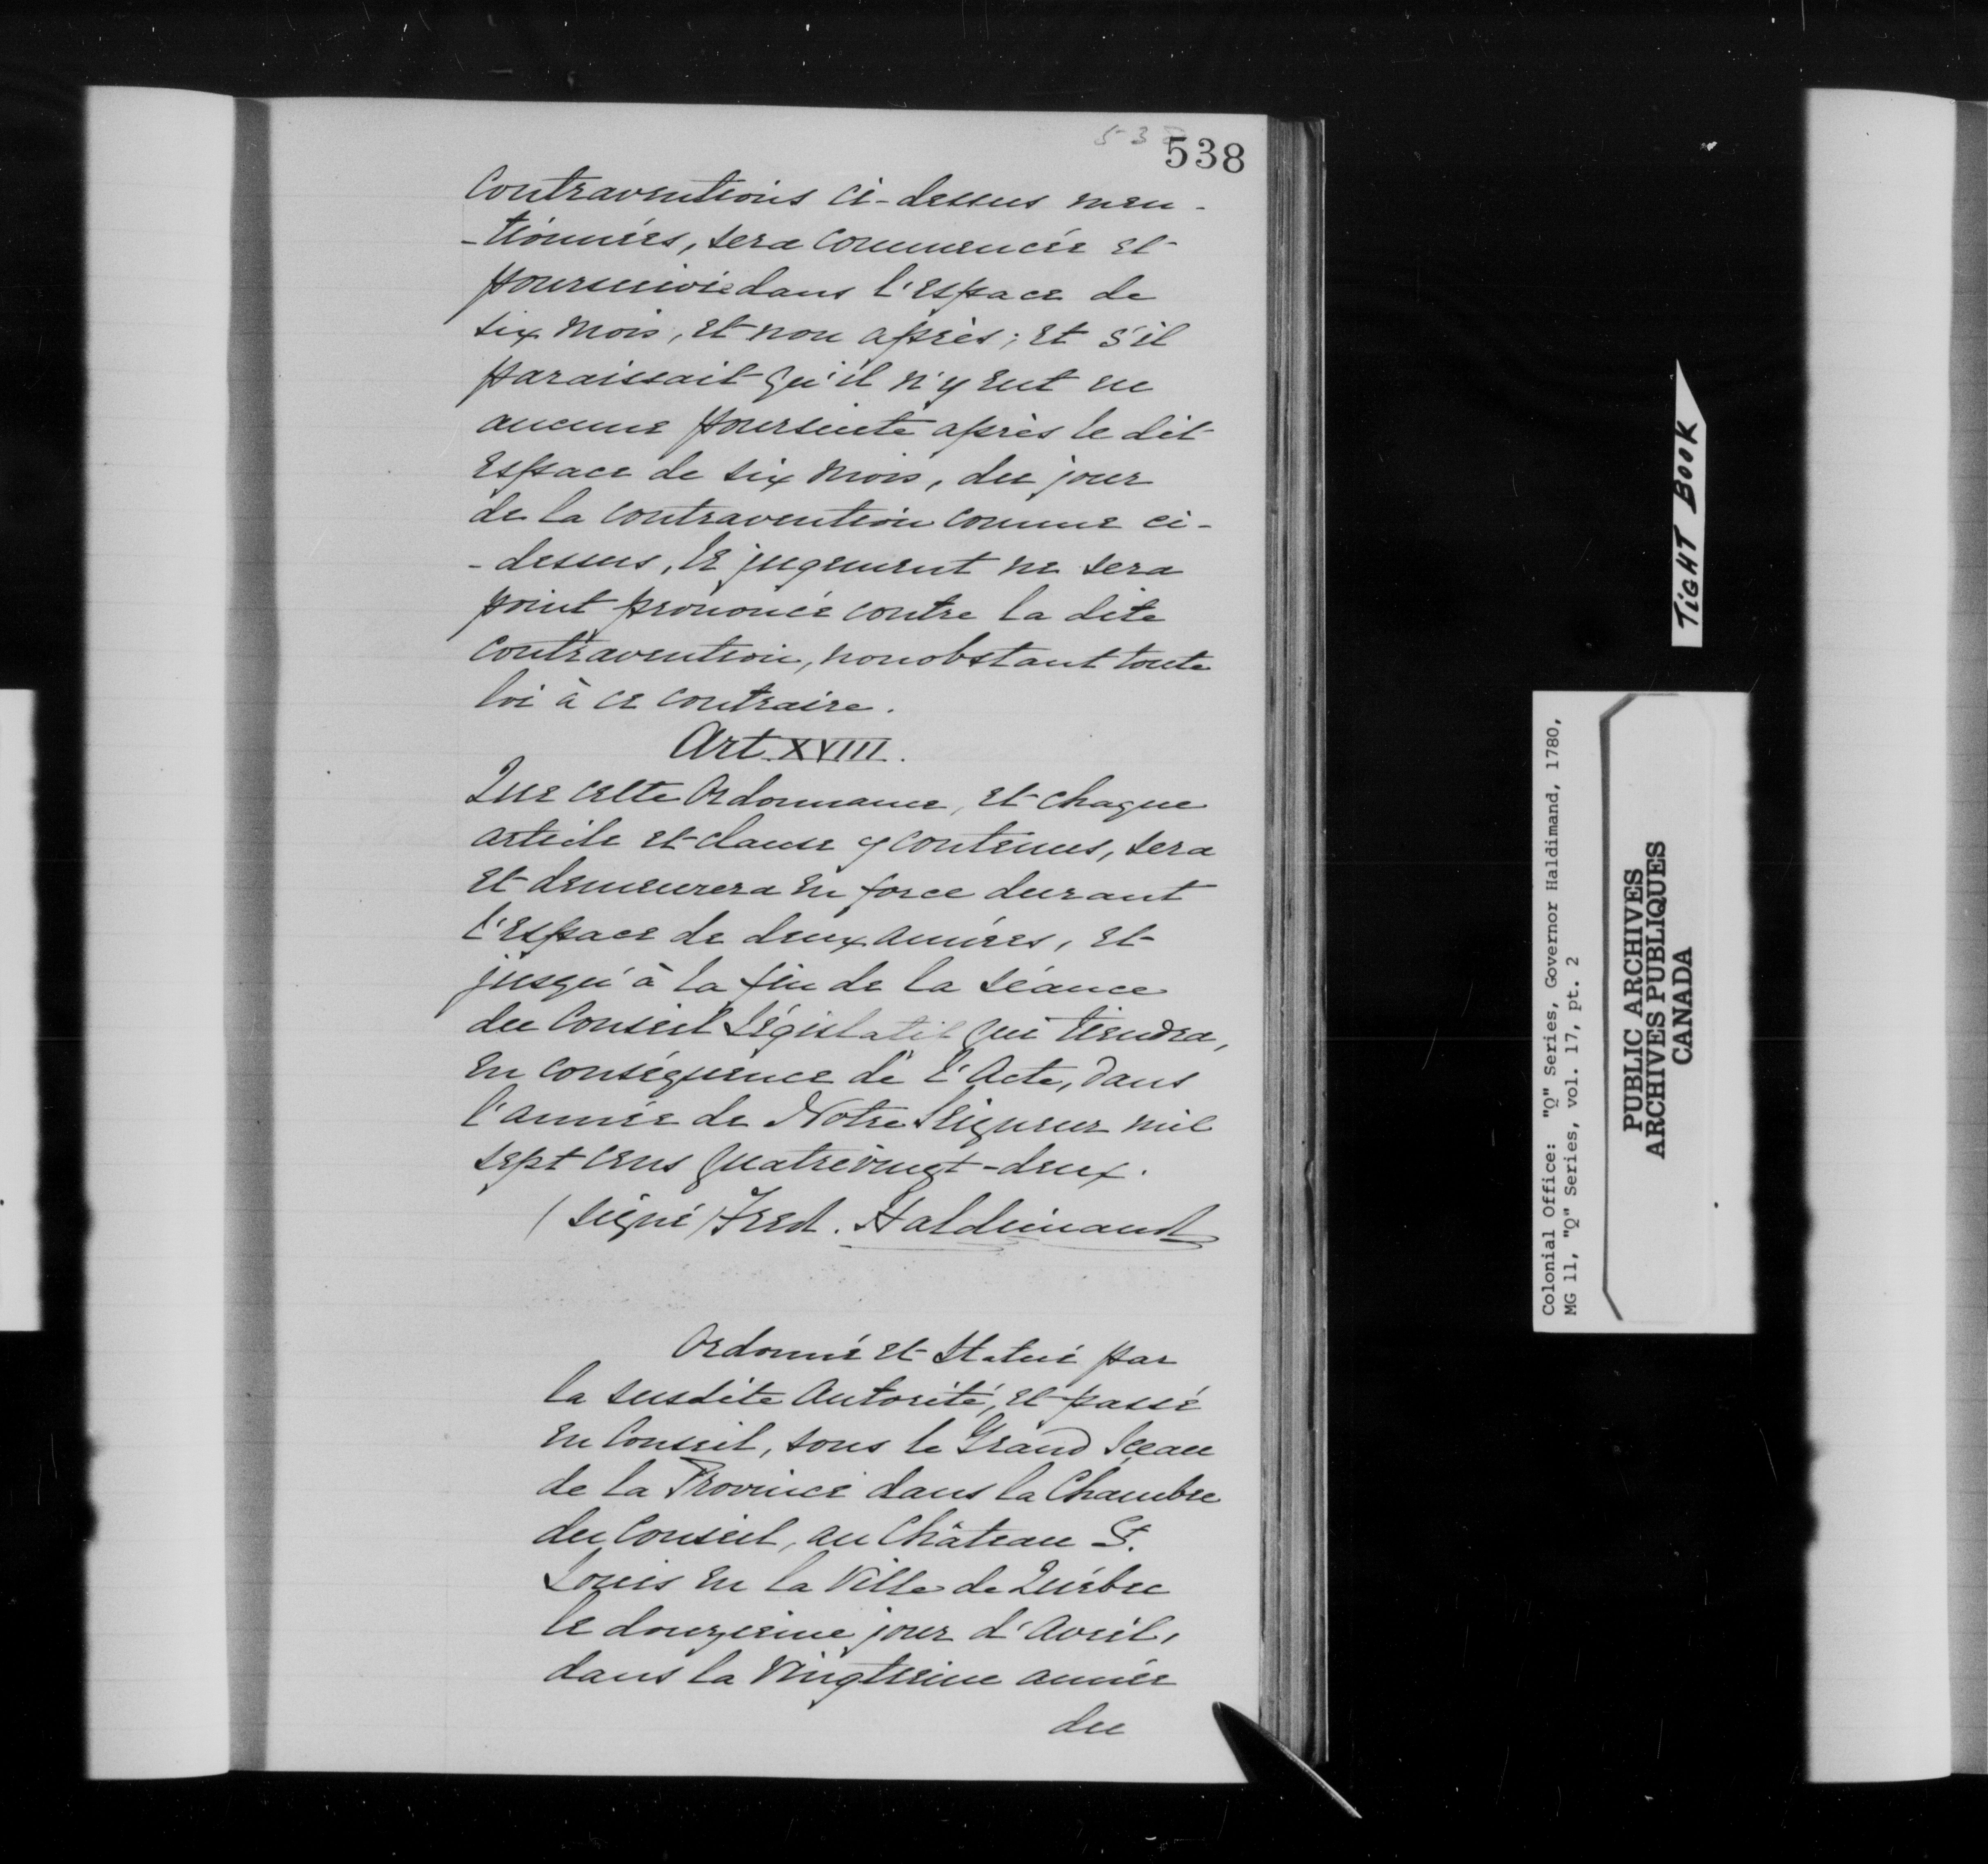 538
538
Contraventions ci-dessus men-
-tionnées, sera commencée et
poursuivie dans l'espace de
six mois, et non après; et s'il
paraissait qu'il n'y eut eu
aucune poursuite après le dit
espace de six mois, du jour
de la contravention comme ci-
-dessus, le jugement ne sera
point prononcé contre la dite
contravention, nonobstant toute
loi à ce contraire.
Art. XVIII.
Que cette Ordonnance, et chaque
article et clause y contenus, sera
et demeurera en force durant
l'espace de deux années, et
jusqu'à la fin de la séance
du Conseil Législatif qui tiendra,
en conséquence de l'Acte, dans
l'année de Notre Seigneur mil
sept cens quatrevingt-deux.
(signé) Fred. Haldimand
Ordonné et Statué par
la susdite Autorité, et passé
en Conseil, sous le Grand Sceau
de la Province dans la Chambre
du Conseil, au Château St.
Louis en la Ville de Québec
le douzieme jour d'Avril,
dans la Vingtieme année
du
TIGHT BOOK
Colonial Office: "Q" Series, Governor Haldimand, 1780,
MG 11, "Q" Series, vol. 17, pt. 2
PUBLIC ARCHIVES
ARCHIVES PUBLIQUES
CANADA